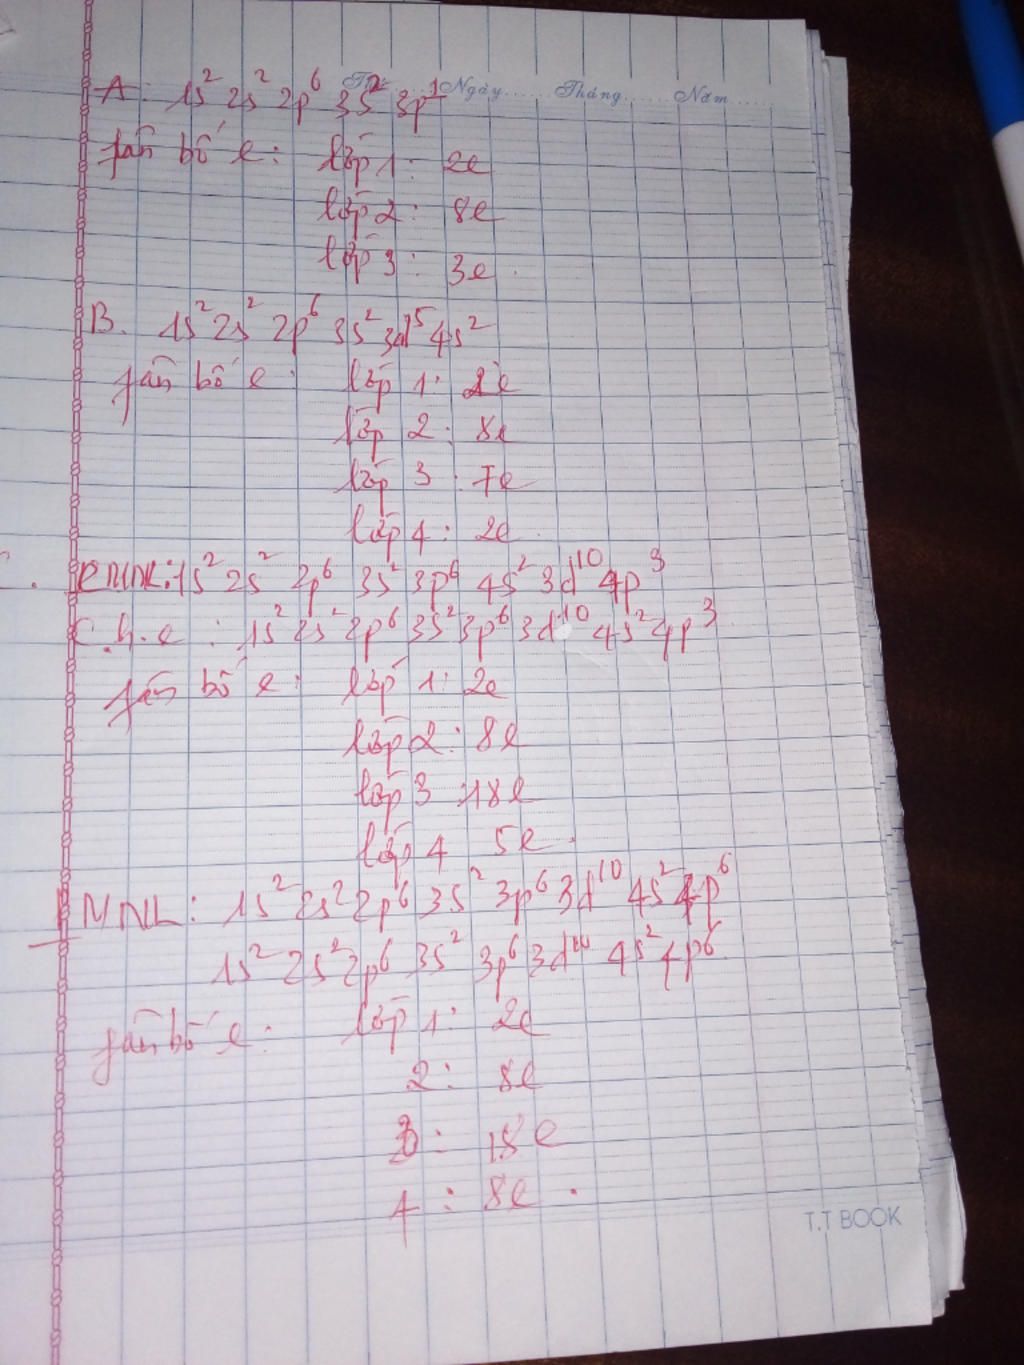 Thứ......Ngày......Tháng......Năm......
A: 1s² 2s² 2p⁶ 3s² 3p¹
fân bố e: lớp 1: 2e
lớp 2: 8e
lớp 3: 3e.
B. 1s² 2s² 2p⁶ 3s² 3d⁵ 4s²
fân bố e: lớp 1: 2e
lớp 2: 8e
lớp 3: 7e
lớp 4: 2e.
C. PMNL: 1s² 2s² 2p⁶ 3s² 3p⁶ 4s² 3d¹⁰ 4p³
C.h.e: 1s² 2s² 2p⁶ 3s² 3p⁶ 3d¹⁰ 4s² 4p³
fân bố e: lớp 1: 2e
lớp 2: 8e
lớp 3: 18e
lớp 4 5e.
MNL: 1s² 2s² 2p⁶ 3s² 3p⁶ 3d¹⁰ 4s² 4p⁶
1s² 2s² 2p⁶ 3s² 3p⁶ 3d¹⁰ 4s² 4p⁶
fân bố e: lớp 1: 2e
2: 8e
3: 18e
4: 8e.
T.T BOOK